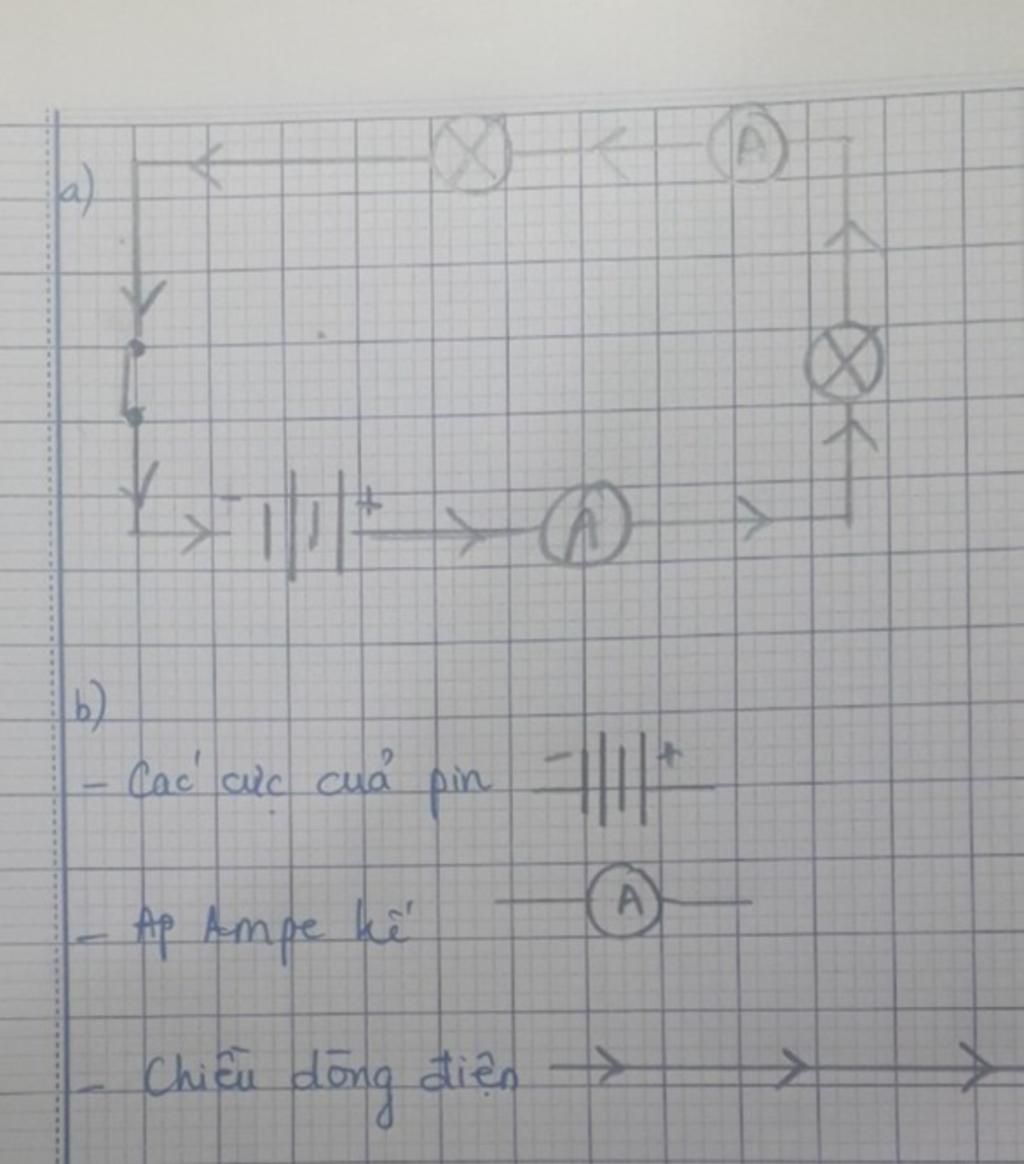 a)
A
- +
A
b)
- Các cực của pin - +
- Ap Ampe kế A
- Chiều dòng điện